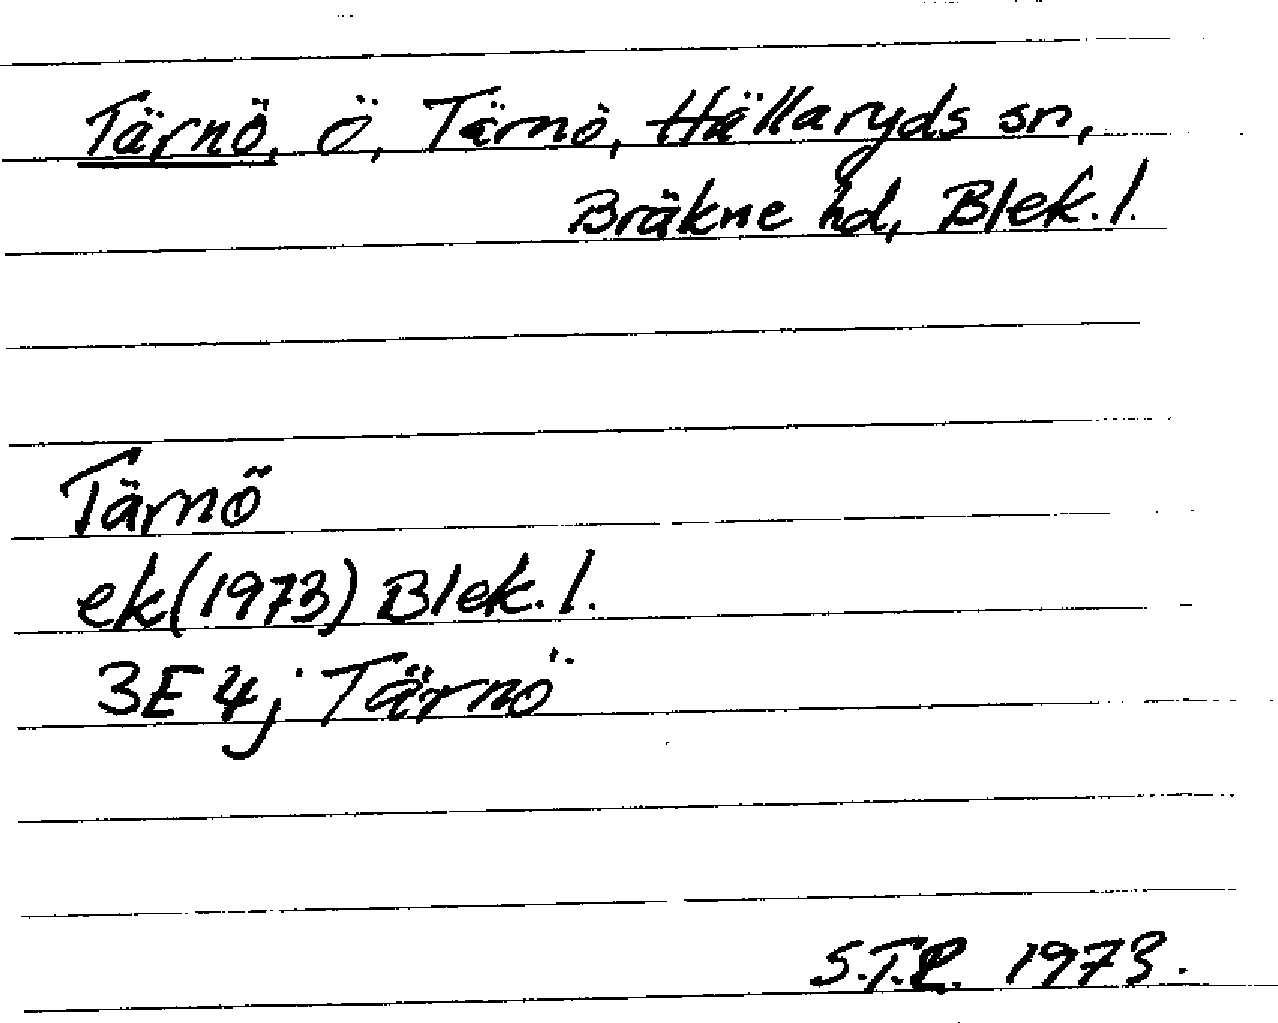 Tärnö, Ö, Tärnö, Hällaryds sn,
Bräkne hd, Blek. l.
Tärnö
ek(1973) Blek. l.
3E 4j Tärnö
S.T.R. 1973.